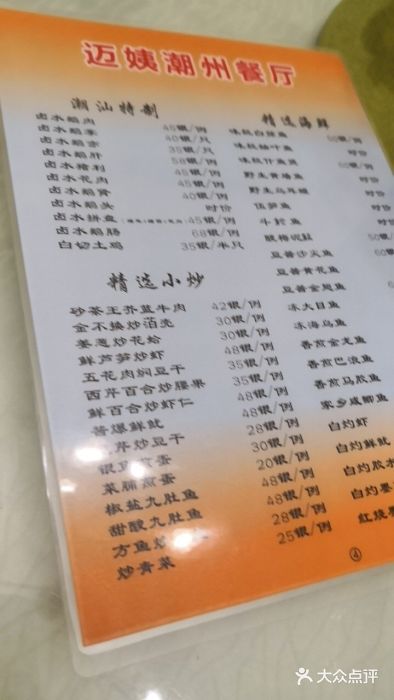 迈姨潮州餐厅
潮汕特制
卤水鹅肉 45银/例
卤水鹅掌 40银/只
卤水鹅京 35银/只
卤水鹅肝 58银/例
卤水猪利 45银/例
卤水花肉 45银/例
卤水鹅肾 40银/例
卤水鹅头 时价
卤水拼盘 45银/例
卤水鹅肠 68银/例
白切土鸡 35银/半只
精选小炒
砂茶王芥蓝牛肉 42银/例
金不换炒泊壳 30银/例
姜葱炒花蛤 30银/例
鲜芦笋炒虾 48银/例
五花肉焖豆干 35银/例
西芹百合炒腰果 35银/例
鲜百合炒虾仁 48银/例
酱爆鲜鱿 48银/例
芹炒豆干 28银/例
银 煎蛋 30银/例
菜脯煎蛋 20银/例
椒盐九肚鱼 48银/例
甜酸九肚鱼 48银/例
方鱼炒 28银/例
炒青菜 25银/例
精选海鲜
野生黄墙鱼 时价
野生乌耳鳗
伍笋鱼 时价
牛鳄鱼
酸梅泥鯭
豆酱沙尖鱼
豆酱黄花鱼
豆酱金鲳鱼
冻大目鱼
冻海乌鱼
香煎金龙鱼
香煎巴浪鱼
香煎马胶鱼
家乡咸鲫鱼
白灼虾
白灼鲜鱿
白灼胶水
白灼
红烧
④
大众点评